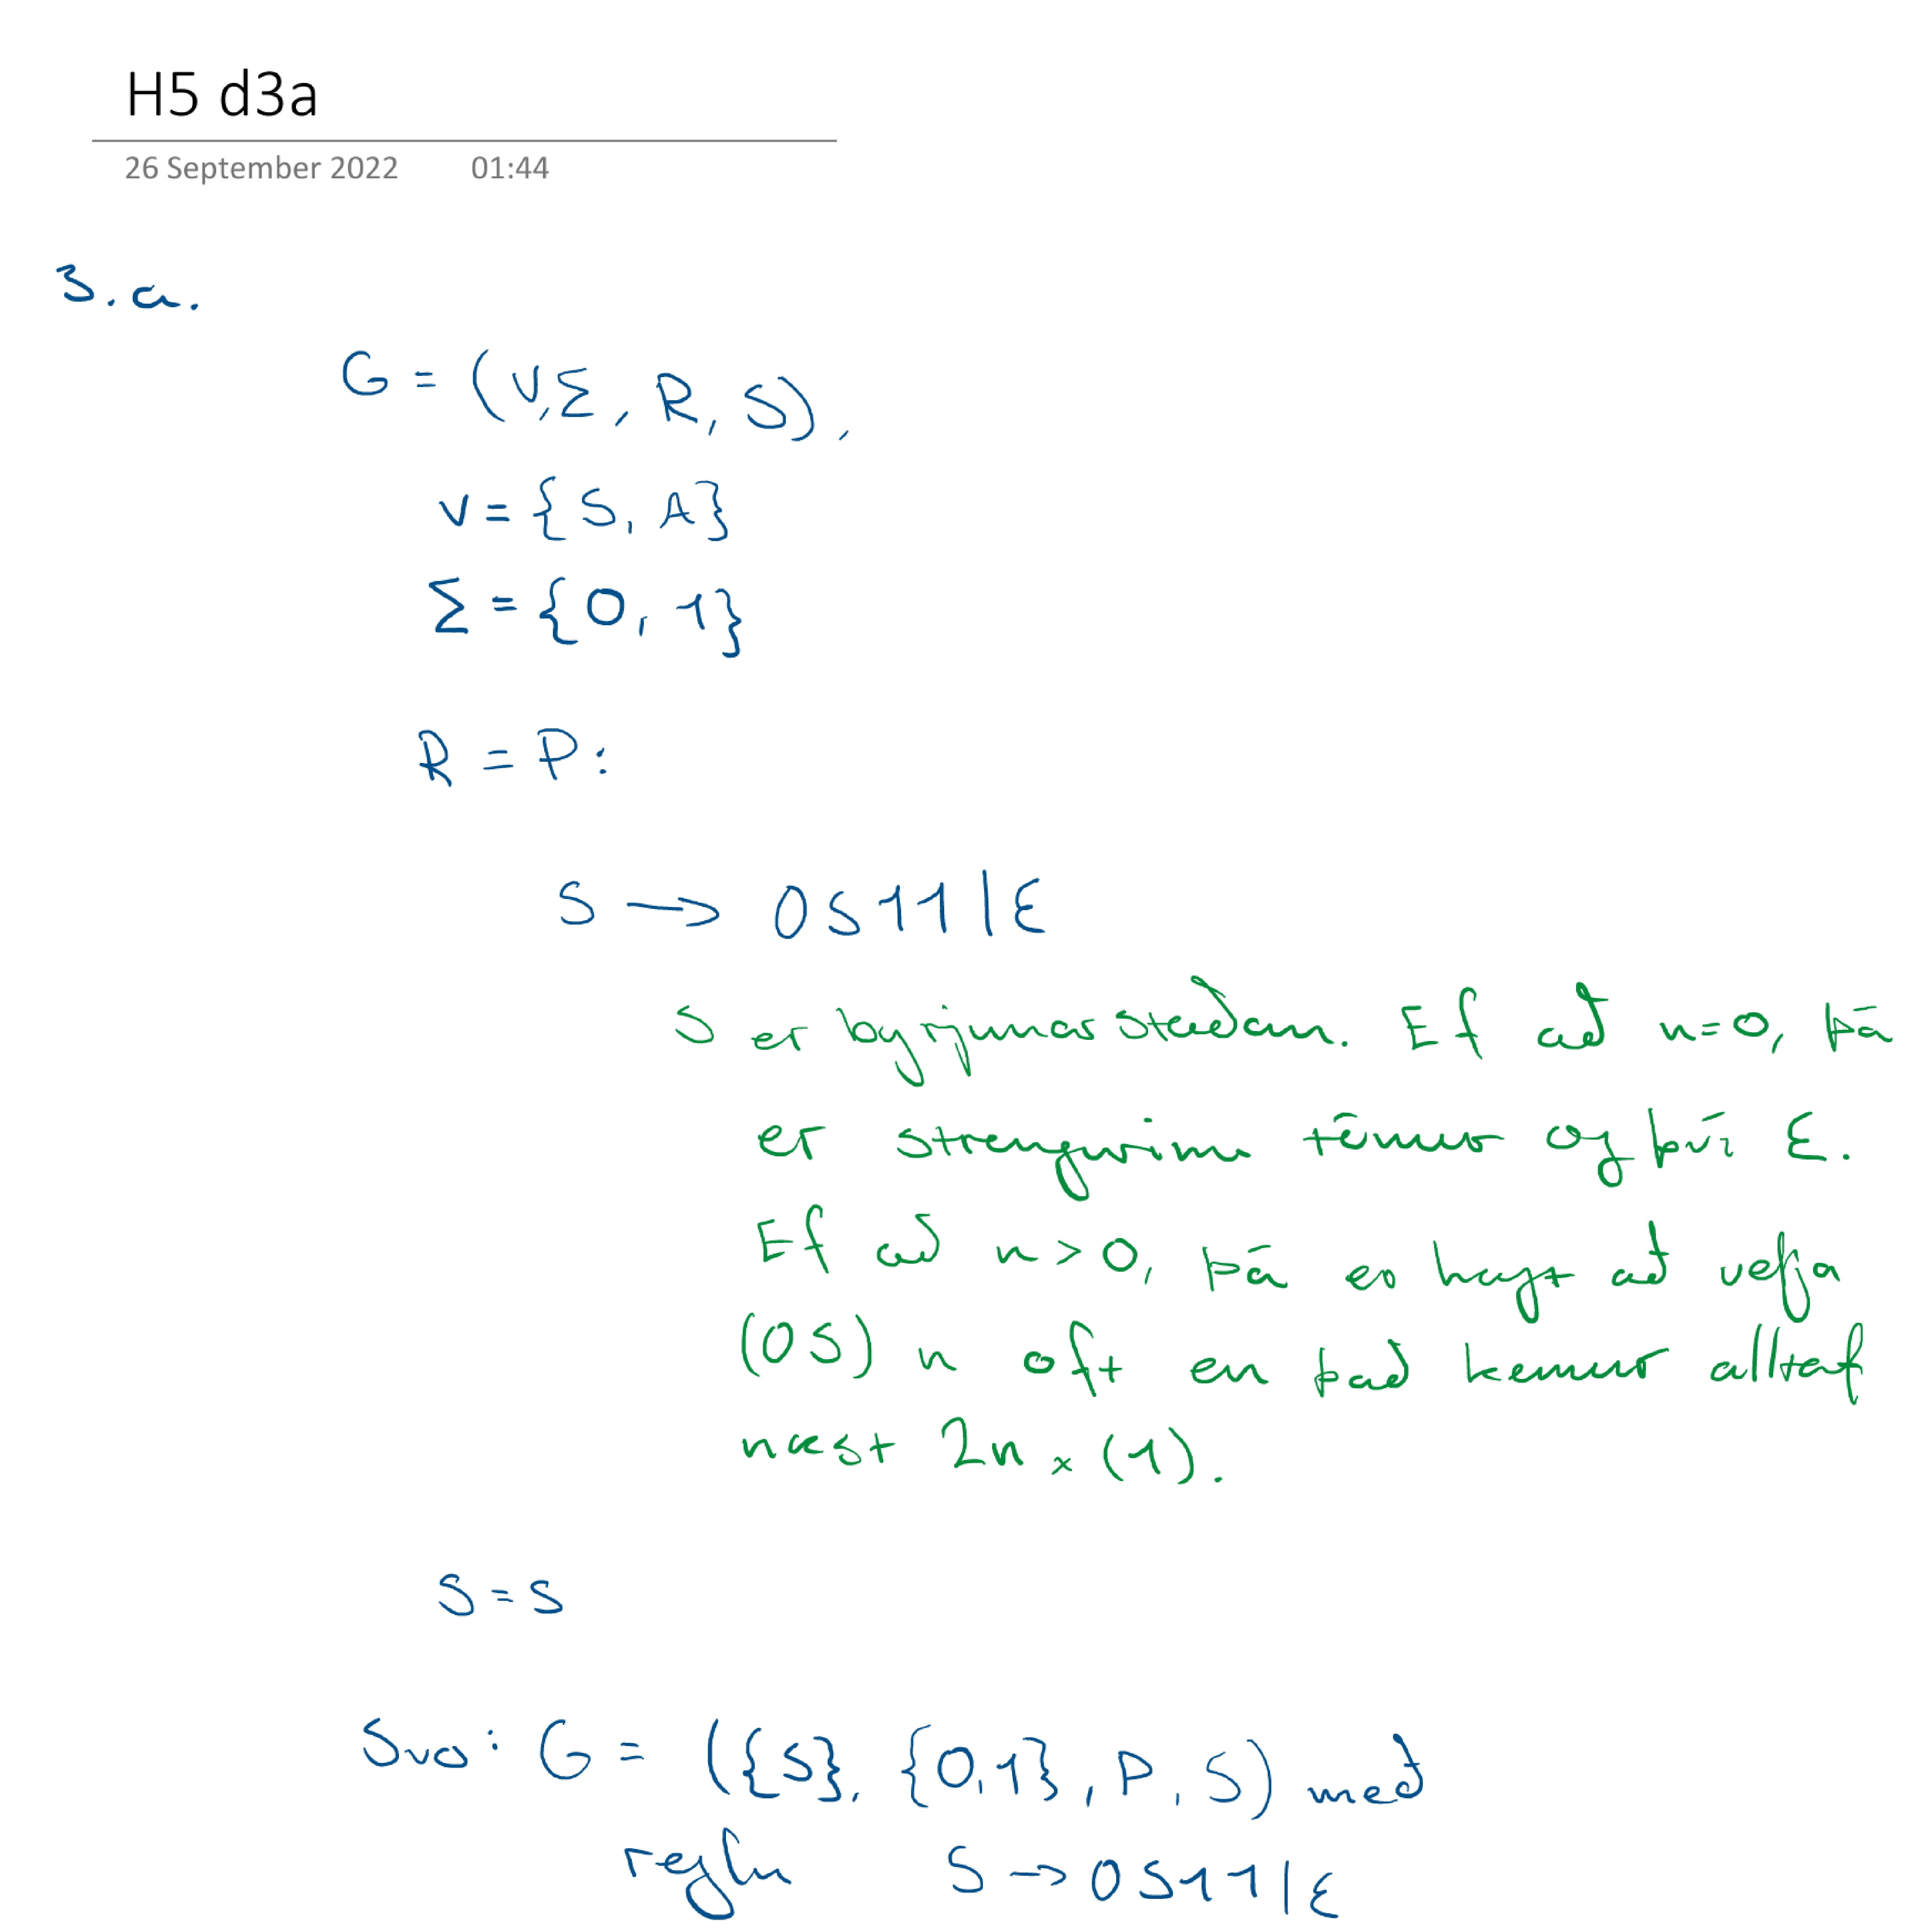 H5 d3a
26 September 2022 01:44
3.a.
G = (V, Σ, R, S),
V = {S, A}
Σ = {0, 1}
R = P:
S → 0S11 | ε
S er byrjunarstaðan. Ef að n=0, þá
er strengurinn tómur og því ε.
Ef að n > 0, þá er hægt að velja
(0S) n oft en það kemur alltaf
næst 2n × (1).
S = S
Svar: G = ({S}, {0,1}, P, S) með
reglu S → 0S11 | ε